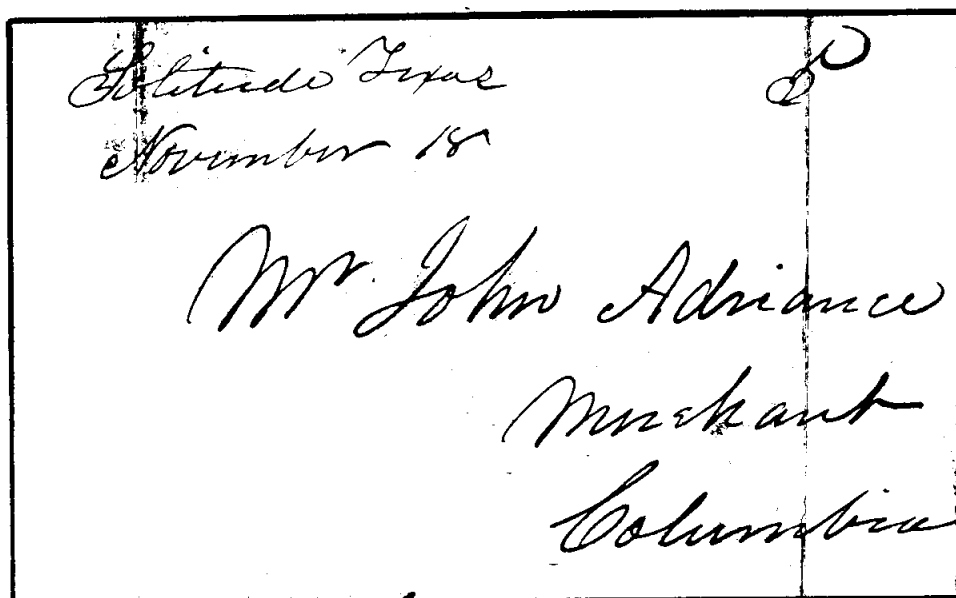 Solitude Texas
November 18
Mr. John Adriance
Merchant
Columbia